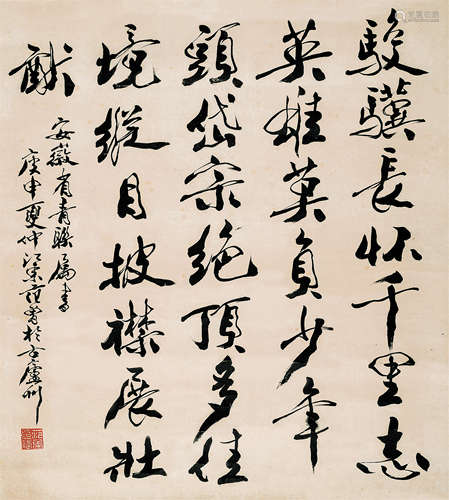 駿驥長怀千里志
英雄莫負少年
頭岱宗絶頂多佳
境縱目披襟展壯
猷
安徽省青聯屬書
庚申夏仲江東范曾於古廬州